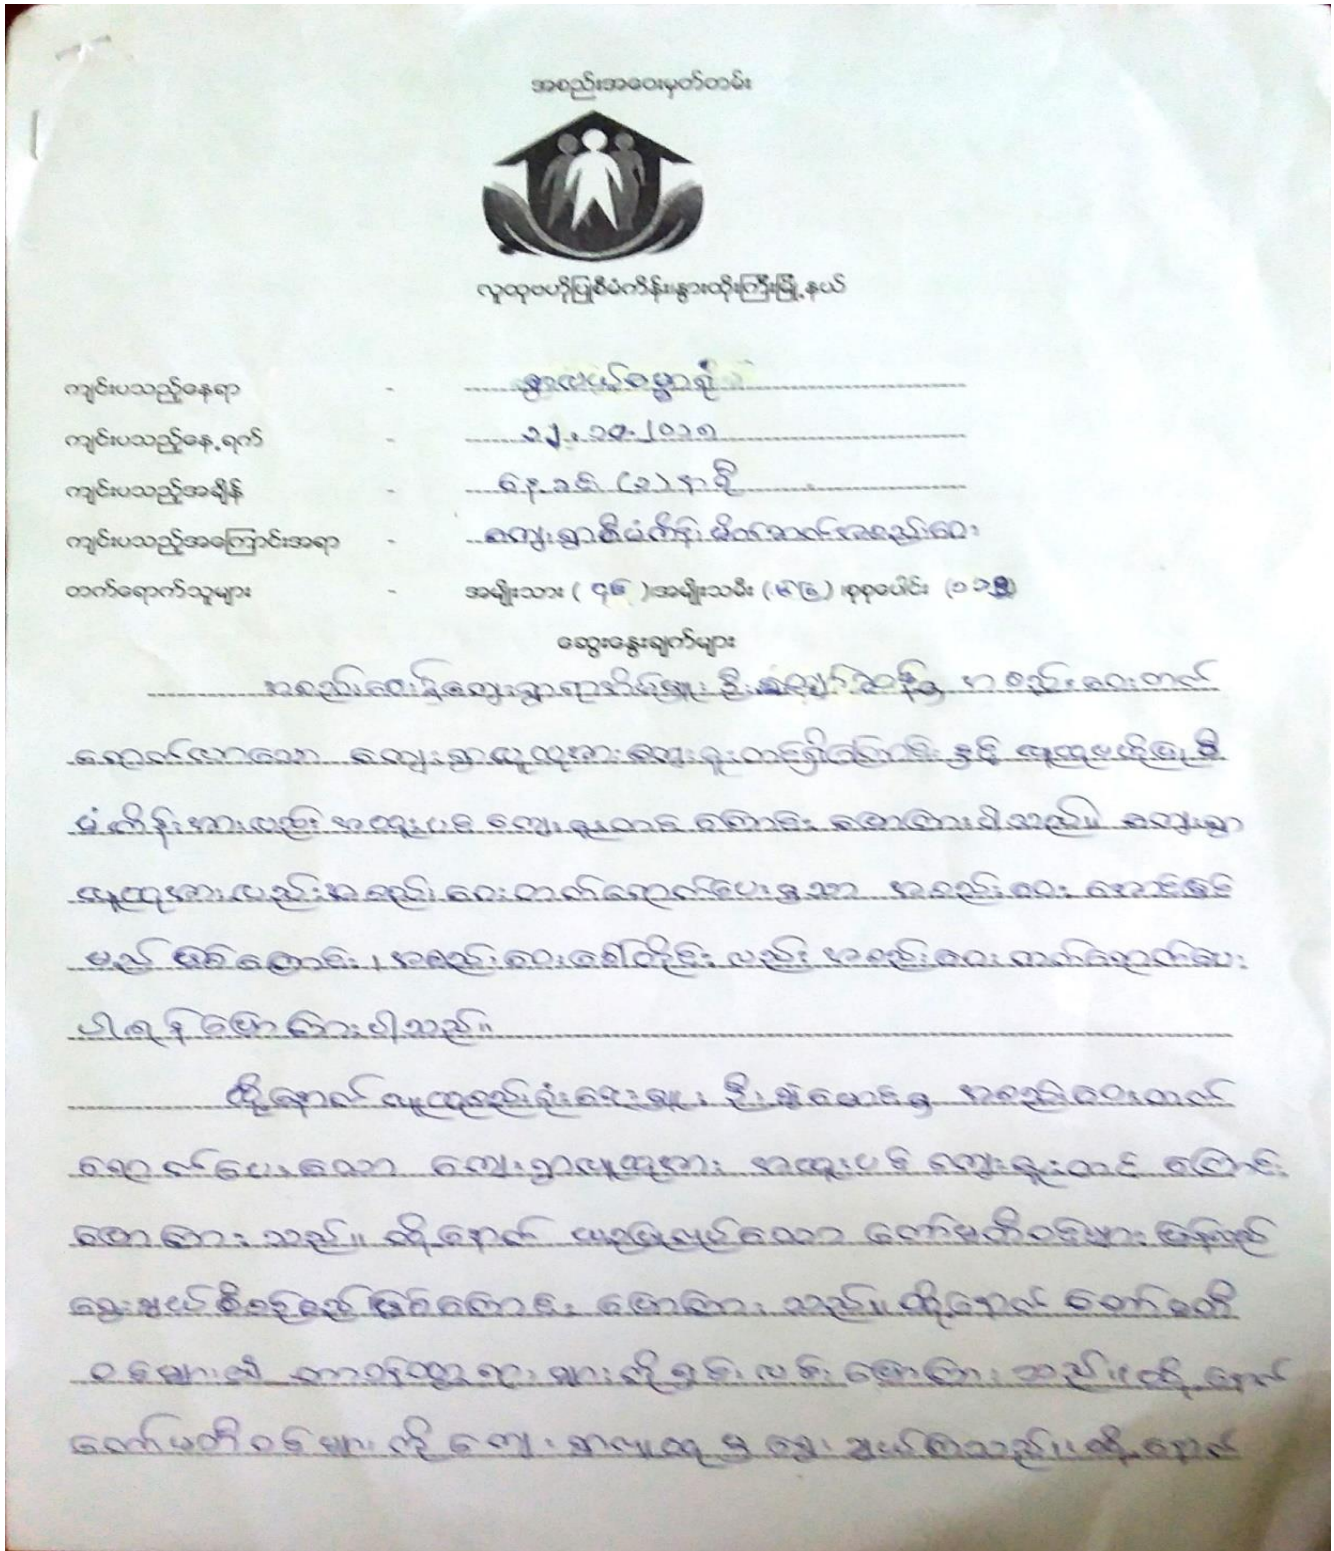 အစည်းအဝေးမှတ်တမ်း
လူထုဗဟိုပြုစီမံကိန်း၊နွားထိုးကြီးမြို့နယ်
ကျင်းပသည့်နေရာ -
ကျင်းပသည့်နေ့ရက် -
ကျင်းပသည့်အချိန် - နေ့ခင်း (၁) နာရီ
ကျင်းပသည့်အကြောင်းအရာ - ကျေးရွာစီမံကိန်း မိတ်ဆက်အစည်းအဝေး
တက်ရောက်သူများ - အမျိုးသား ( ၄၆ )၊အမျိုးသမီး ( ) ၊စုစုပေါင်း
ဆွေးနွေးချက်များ
အစည်းဝေးကို ကျေးရွာရာအိမ်မှူး ဦး မှ အစည်းဝေးတက်
ရောက်လာသော ကျေးရွာလူထုအားကျေးဇူးတင်ရှိကြောင်း နှင့် လူထုဗဟိုပြုစီ
မံကိန်းအားလည်း အထူးပင် ကျေးဇူးတင် ကြောင်း ပြောကြားပါသည်။ ကျေးရွာ
လူထုအားလည်းအစည်းဝေးတက်ရောက်ပေးမှသာ အစည်းဝေး အောင်မြင်
မည် ဖြစ်ကြောင်း၊ အစည်းဝေးခေါ်တိုင်း လည်း အစည်းဝေးတက်ရောက်ပေး
ပါရန် ပြောကြားပါသည်။
ထို့နောက် လူထုစည်းရုံးရေးမှူး ဦး မှ အစည်းဝေးတက်
ရောက်ပေးသော ကျေးရွာလူထုအား အထူးပင် ကျေးဇူးတင် ကြောင်း
ပြောကြား သည်။ ထို့နောက် ယခုပြုလုပ်သော ကော်မတီဝင်များ ပြန်လည်
ရွေးချယ် မည် ဖြစ်ကြောင်း ပြောကြား သည်။ ထို့နောက် ကော်မတီ
ဝင်များ၏ တာဝန်ဝတ္တရား များကို ရှင်းလင်း ပြောကြား သည်။ ထို့နောက်
ကော်မတီဝင်များ ကို ကျေးရွာလူထု မှ ရွေးချယ်ကြသည်။ ထို့နောက်